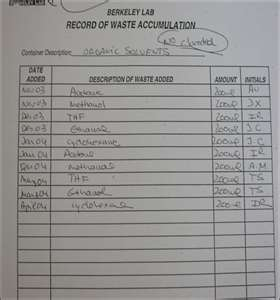 BERKELEY LAB
RECORD OF WASTE ACCUMULATION
No chlorinated
Container Description: ORGANIC SOLVENTS
DATE ADDED DESCRIPTION OF WASTE ADDED AMOUNT INITIALS
Nov 03 Acetone 200ml AU
Nov 03 Methanol 200ml JX
Dec 03 THF 200ml IR
Dec 03 Ethanol 200ml J.C
Jan 04 Cyclohexane 200ml J.C
Jan 04 Acetone 200ml IR
Feb 04 Methanol 200ml A.M
THF 200ml TS
Ethanol 200ml TS
April 04 Cyclohexane 200ml IR